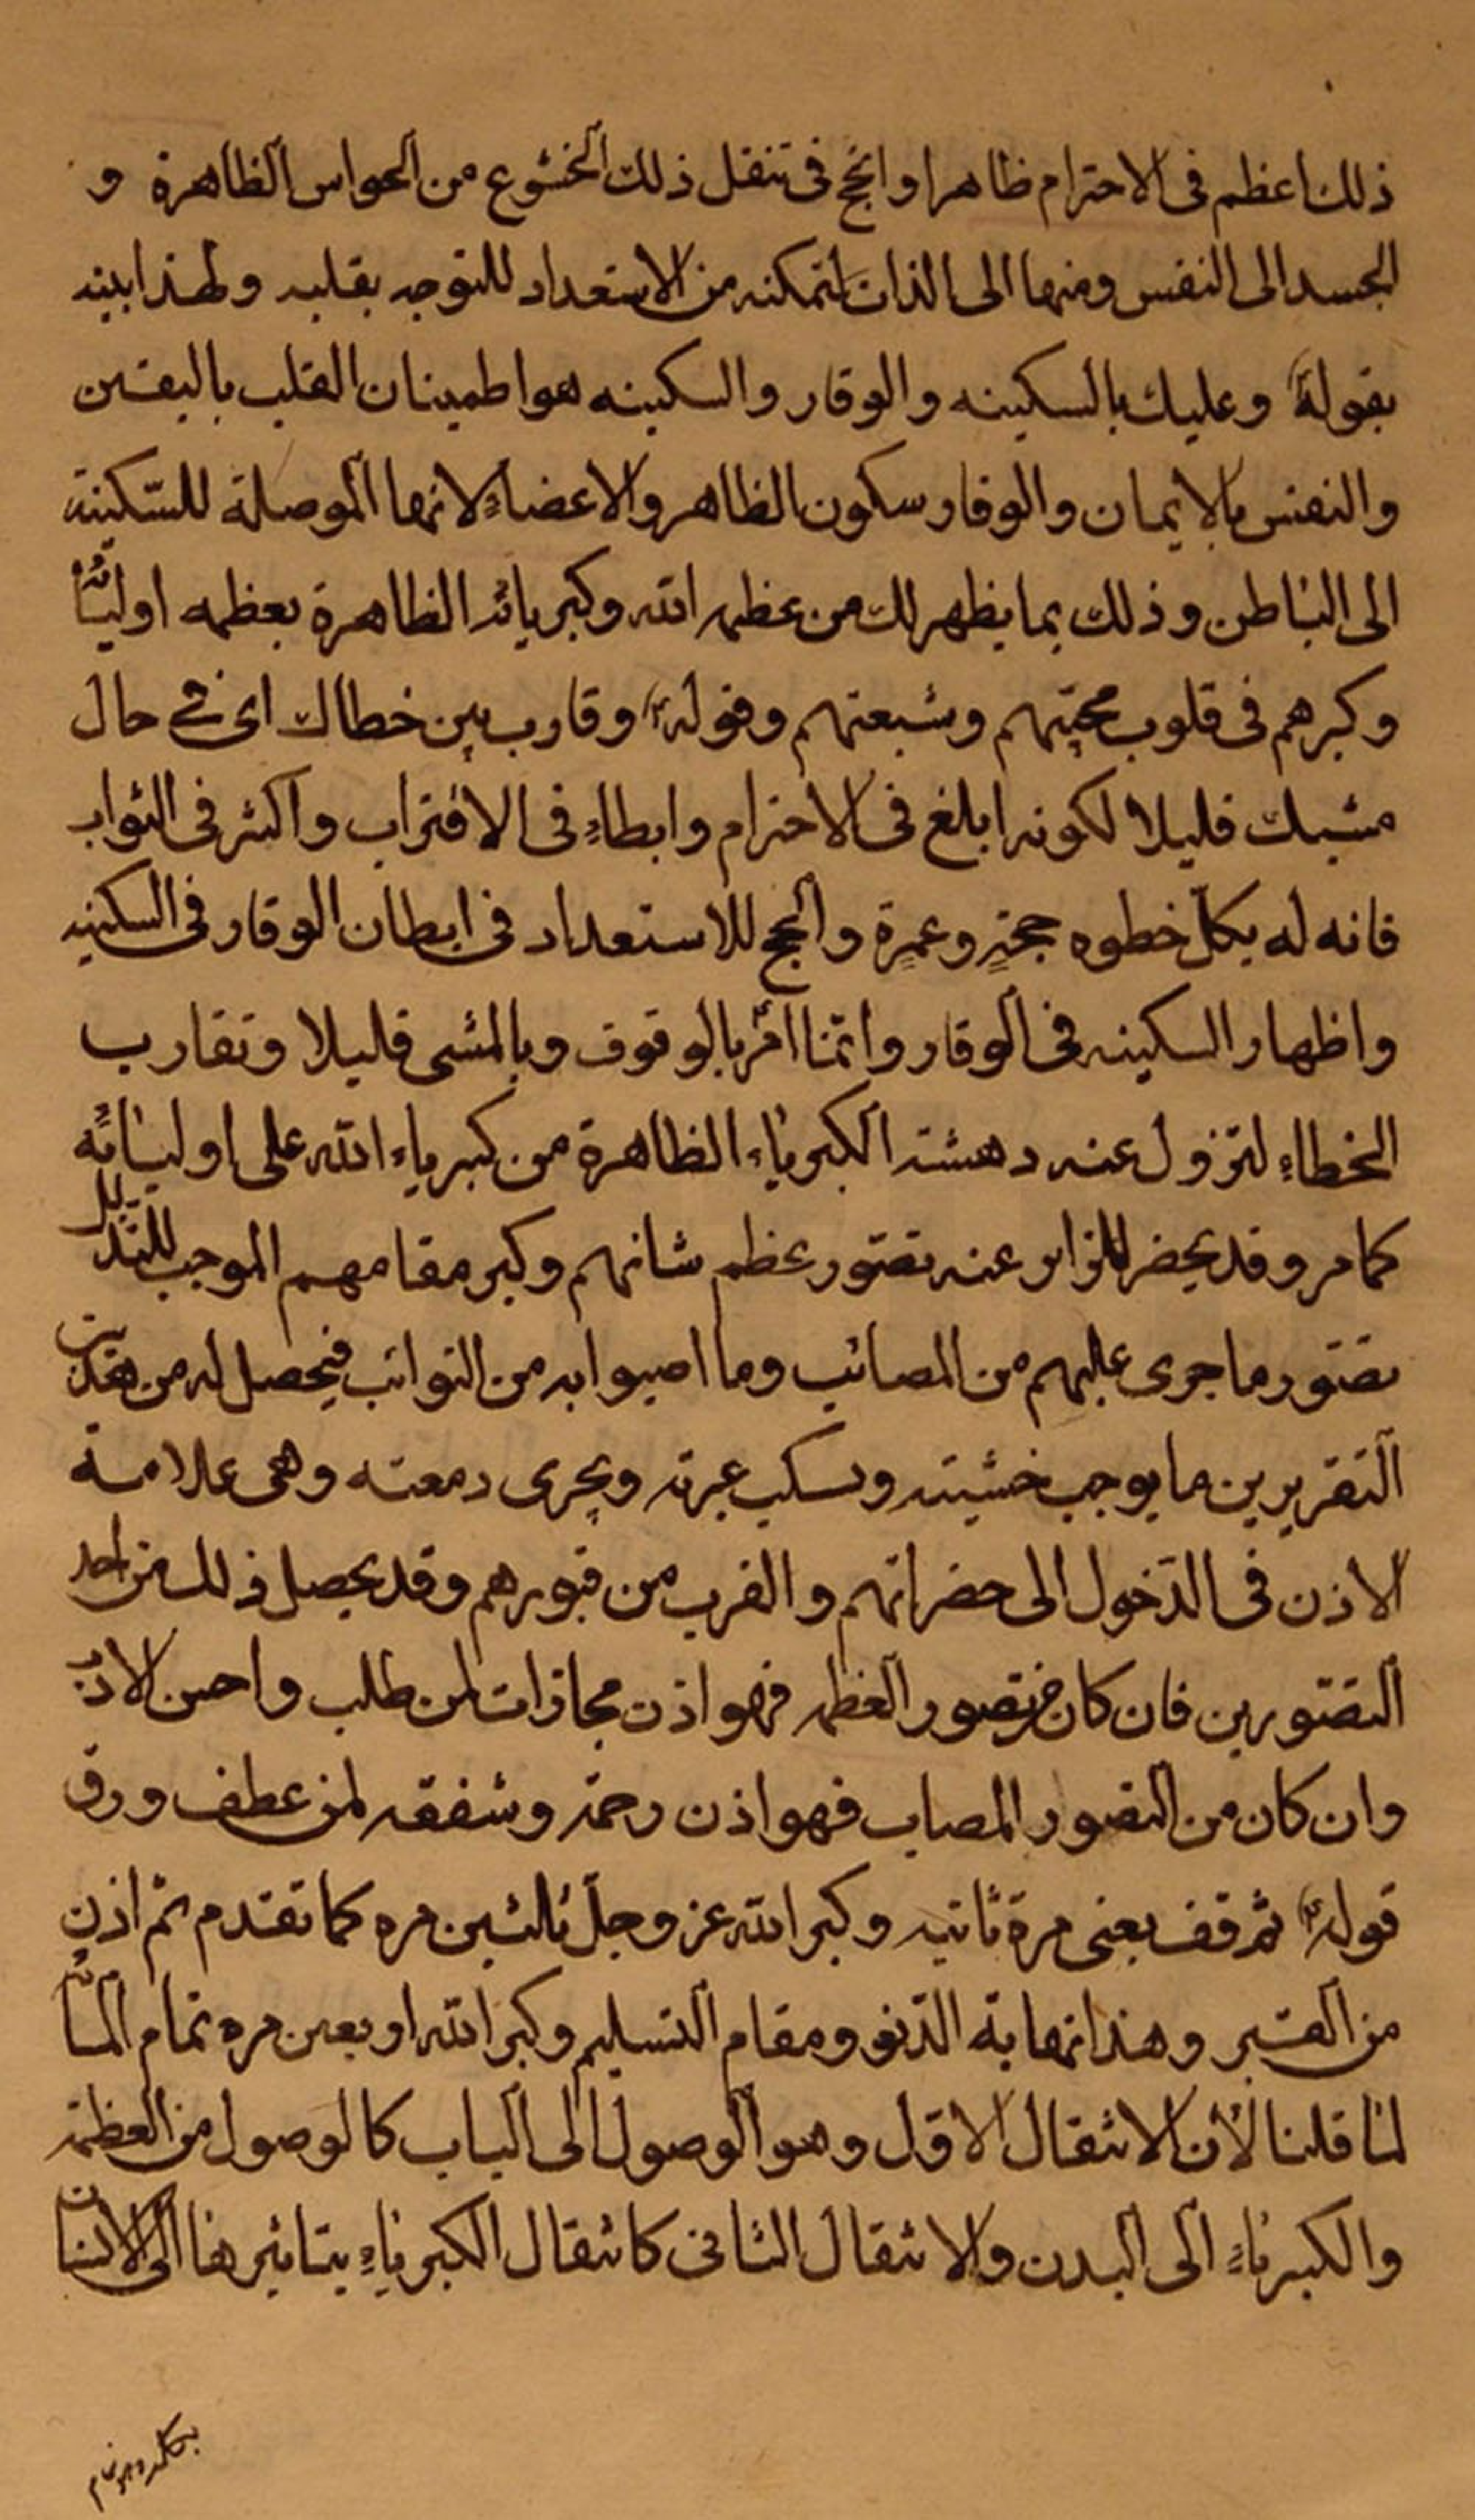 ذلك اعظم فى الاحترام ظاهرا وانجح فى تنقل ذلك الخشوع من الحواس الظاهرة و
الجسد الى النفس ومنها الى الذات لتمكنه من الاستعداد للتوجه بقلبه ولهذا بينه
بقوله ع وعليك بالسكينه والوقار والسكينه هو اطمينان القلب باليقين
والنفس بالايمان والوقار سكون الظاهر والاعضاءِ لانها الموصلة للسّكينة
الى الباطن وذلك بما يظهر لك من عظمه الله وكبريائه الظاهرة بعظمه اوليائه
وكبرهم فى قلوب محبيهم وشيعتهم وقوله ع وقارب بين خطاك اى فى حال
مشيك قليلا لكونه ابلغ فى الاحترام وابطاءِ فى الاقتراب واكثر فى الثواب
فانه له بكل خطوه حجةٍ وعمرةٍ وانجح للاستعداد فى ابطان الوقار فى السكينه
واظهار السكينه فى الوقار وانّما امر بالوقوف وبالمشى قليلا وتقارب
الخطاءِ لتزول عنه دهشته الكبرياءِ الظاهرة من كبرياء الله على اوليائه
كما مر وقد يحضر للزائر عنه تصّور عظم شانهم وكبر مقامهم الموجب للتذلل
تصّور ما جرى عليهم من المصائب وما اصيبوا به من النوائب فيحصل له من هذين
التقريرين ما يوجب خشيته وسكب عبرته ويجرى دمعته وهى علامة
الاذن فى الدّخول الى حضراتهم والقرب من قبورهم وقد يحصل ذلك من احد
التصّورين فان كان من تصور العظمه فهو اذن مجازات لمن طلب واحسن الادب
وان كان من التصور المصاب فهو اذن رحمة وشفقه لمن عطف ورق
قوله ع ثم قف يعنى مرة ثانيه وكبر الله عز وجلّ ثلثين مره كما تقدم ثم اذن
من القبر وهذا نهاية الدّنو ومقام التسليم وكبر الله اربعين مره تمام المائه
لما قلنا لان الانتقال الاوّل وهو الوصول الى الباب كالوصول من العظمة
والكبرياءِ الى البدن والانتقال الثانى كانتقال الكبرياءِ بتاثيرها الى الانسان